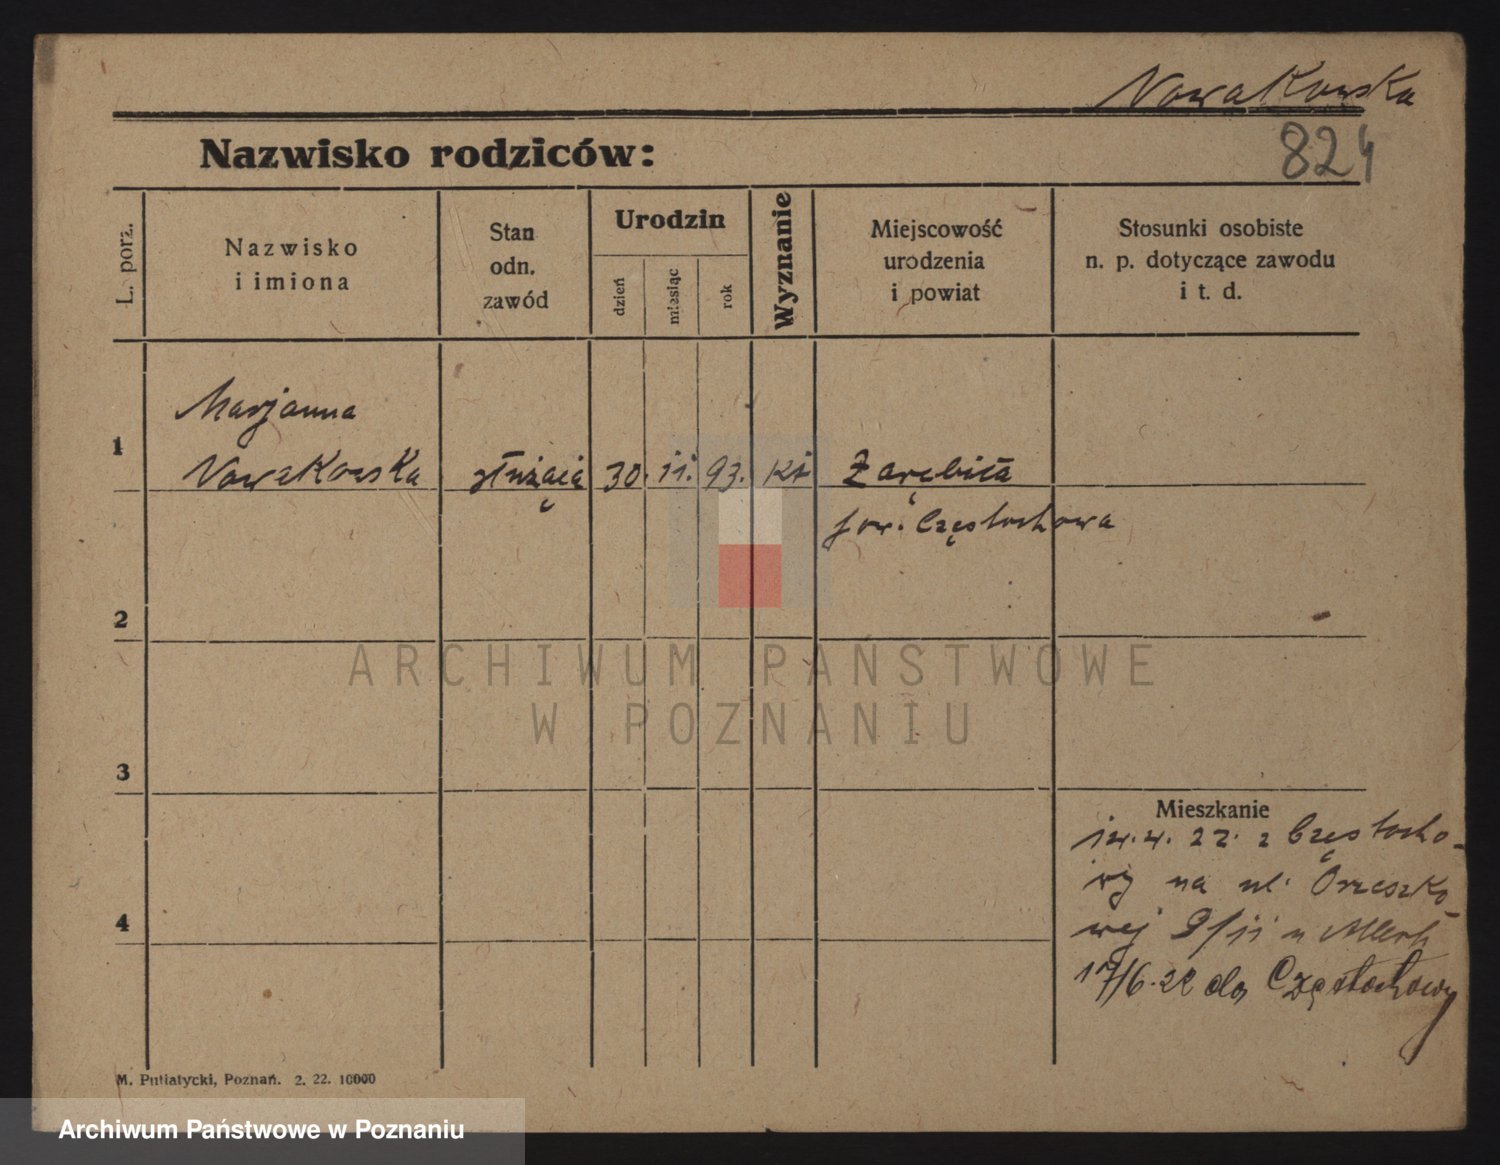 Nowakowska
824
Nazwisko rodziców:
L. porz.
Nazwisko
i imiona
Stan
odn.
zawód
Urodzin
dzień
miesiąc
rok
Wyznanie
Miejscowość
urodzenia
i powiat
Stosunki osobiste
n. p. dotyczące zawodu
i t. d.
1
Marjanna
Nowakowska służąca 30. 11. 93. kt
pow. Częstochowa
2
3
4
Mieszkanie
14. 4. 22. z Częstocho-
wy na ul. Orzeszko-
wej 9/11 u
17/6. 22 do Częstochowy
M. Putiatycki, Poznań. 2. 22. 10000
ARCHIWUM PAŃSTWOWE
W POZNANIU
Archiwum Państwowe w Poznaniu